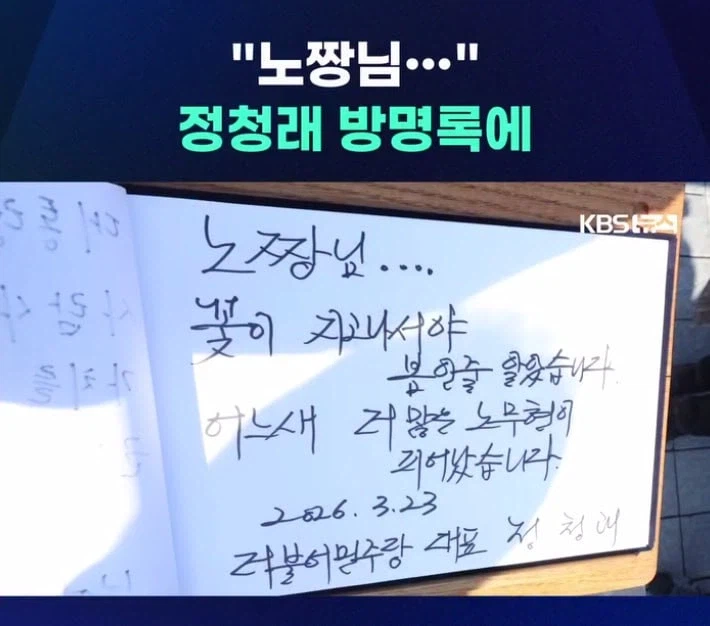 "노짱님…"
정청래 방명록에
KBS뉴스
노짱님....
꽃이 지고나서야
봄인줄 알았습니다.
어느새 더 많은 노무현이
피어났습니다.
2026. 3.23
더불어민주당 대표 정청래